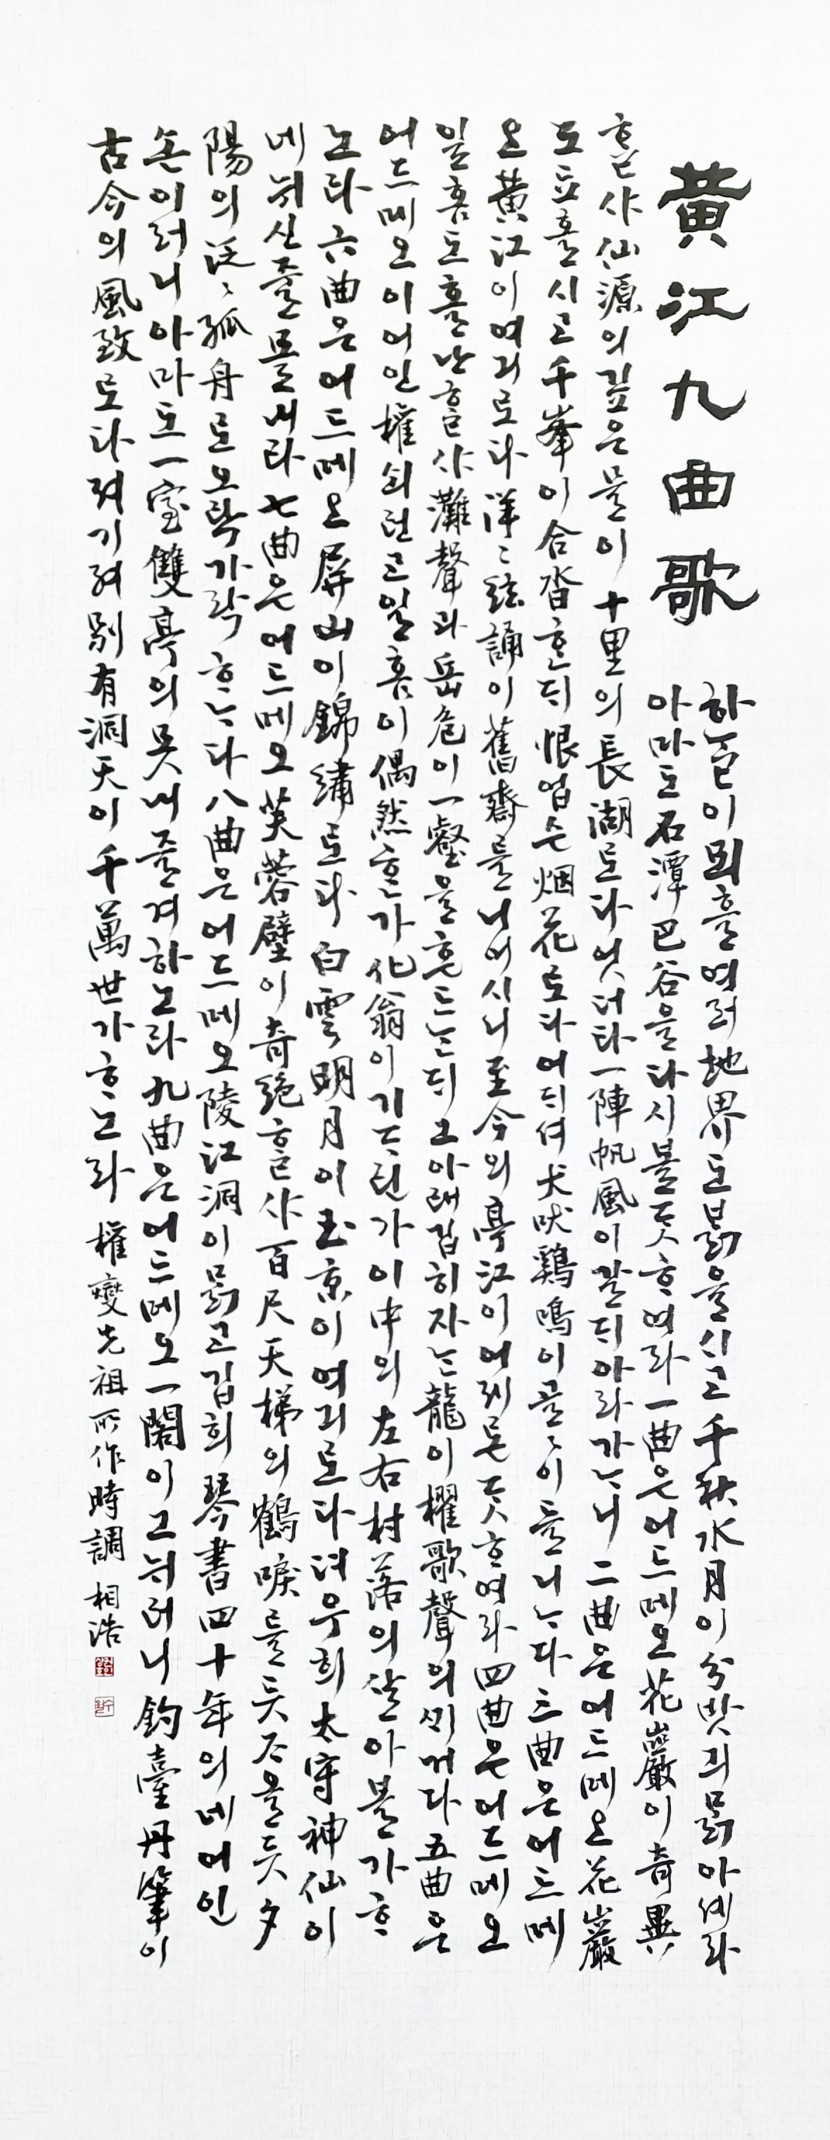 黃江九曲歌
하ᄂᆞᆯ이 뫼흘 여러 地界도 ᄇᆞᆰ을시고 千秋水月이 分밧긔 ᄆᆞᆰ아셰라
아마도 石潭巴谷을 다시 볼ᄃᆞᆺ ᄒᆞ여라 一曲은 어드메오 花巖이 奇異
ᄒᆞᆯ샤 仙源의 깊은 물이 十里의 長湖로다 엇더타 一陣帆風이 갈ᄃᆡ 아라 가ᄂᆞ니 二曲은 어드메오 花巖
도 됴흘시고 千峯이 合沓ᄒᆞᆫᄃᆡ 恨업슨 烟花로다 어ᄃᆡ셔 犬吠鷄鳴이 골〻이 들니ᄂᆞ다 三曲은 어드메
오 黃江이 여긔로다 洋〻絃誦이 舊齋를 니어시니 至今의 亭江이 어제론ᄃᆞᆺ ᄒᆞ여라 四曲은 어드메오
일홈도 홀난ᄒᆞᆯ샤 灘聲과 岳危이 一壑을 흔드ᄂᆞᆫᄃᆡ 그 아래 깁히 자ᄂᆞᆫ 龍이 櫂歌聲의 ᄭᆡ거다 五曲은
어드메오 이 어인 權쇠런고 일홈이 偶然ᄒᆞᆫ가 化翁이 기ᄃᆞ린가 이 中의 左右村落의 살아볼가 ᄒᆞ
노라 六曲은 어드메오 屛山이 錦繡로다 白雲明月이 玉京이 여긔로다 뎌 우희 太守神仙이
네 뉘신줄 몰내라 七曲은 어드메오 芙蓉壁이 奇絶ᄒᆞᆯ샤 百尺天梯의 鶴唳를 듯ᄌᆞ올듯 夕
陽의 泛〻孤舟로 오락가락 ᄒᆞᄂᆞ다 八曲은 어드메오 陵江洞이 ᄆᆞᆰ고 깁희 琴書四十年의 네 어인
손이러니 아마도 一室雙亭의 못내 즐겨 하노라 九曲은 어드메오 一閤이 그 뉘러니 釣臺丹筆이
古今의 風致로다 져기 져 別有洞天이 千萬世가 ᄒᆞ노라 權燮先祖所作時調 相浩